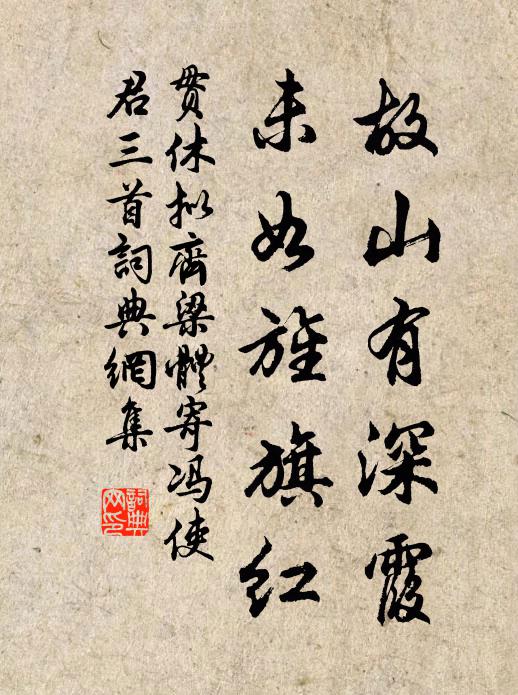 故山有深霞
未如旌旗红
贯休拟齊梁體寄冯使
君三首詞典網集
詞典
网印